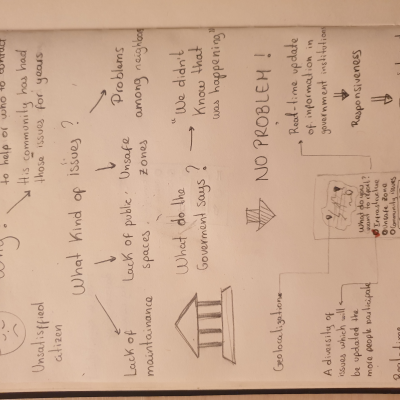 Why?
to help or who to contact
His community has had
those issues for years
Unsatisffied
citizen
What Kind of issues?
Lack of
maintainance
Lack of public
spaces.
Unsafe
zones
Problems
among neighbors
What do the
Goverment says?
"We didn't
Know that
was happening"
NO PROBLEM!
Geolocalization
Real-time update
of information in
government institution
what do you
want to report?
Infrastructure
Unsafe zone
Community issues
A diversity of
issues which will
be updated the
more people participate
Responsiveness